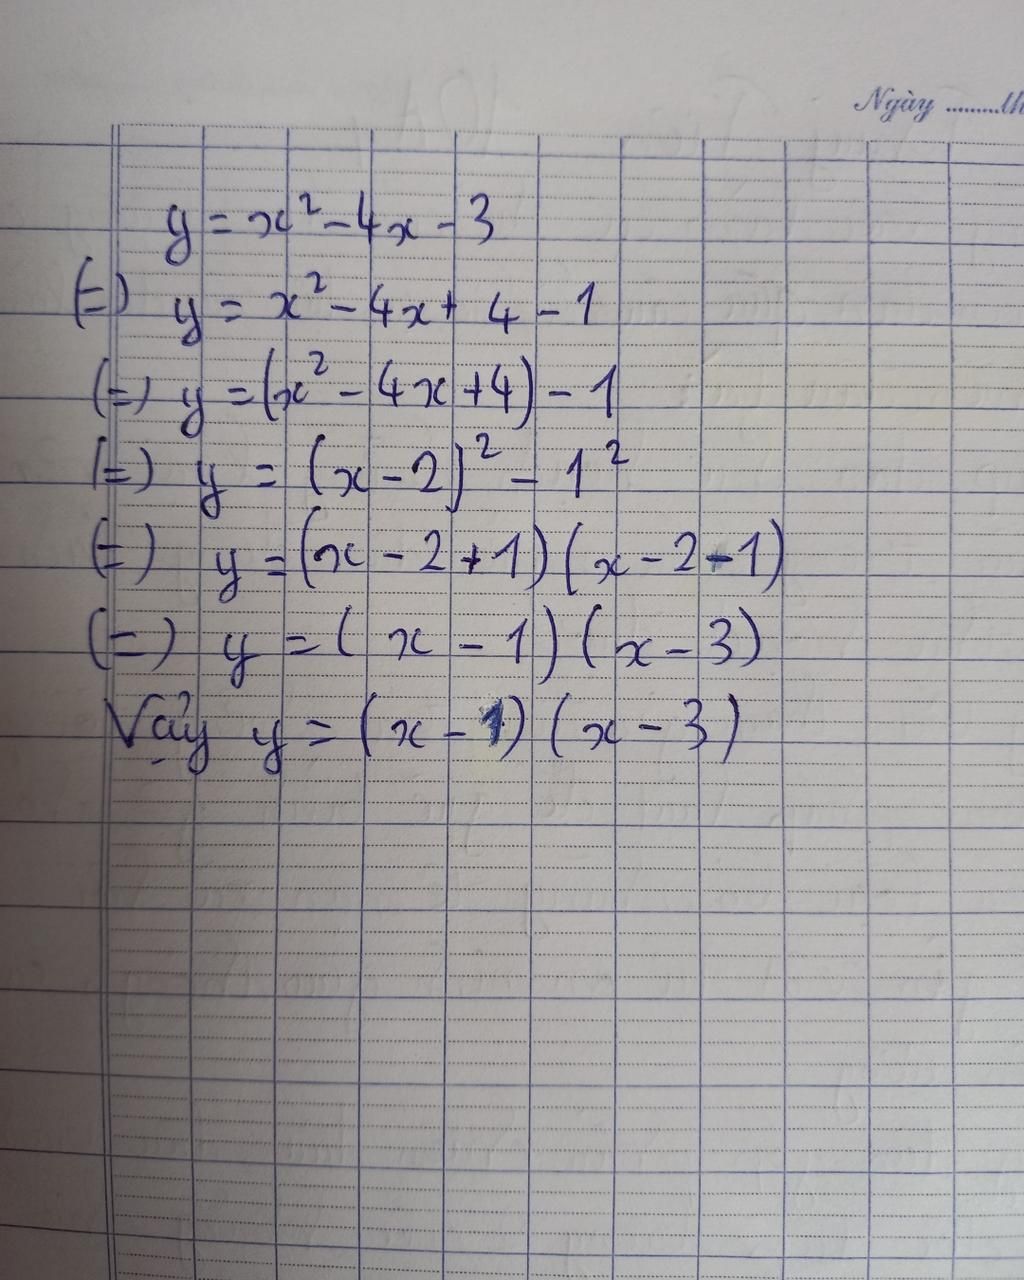 Ngày .........th
y = x² - 4x - 3
(=) y = x² - 4x + 4 - 1
(=) y = (x² - 4x + 4) - 1
(=) y = (x - 2)² - 1²
(=) y = (x - 2 + 1) (x - 2 - 1)
(=) y = (x - 1) (x - 3)
Vậy y = (x - 1) (x - 3)